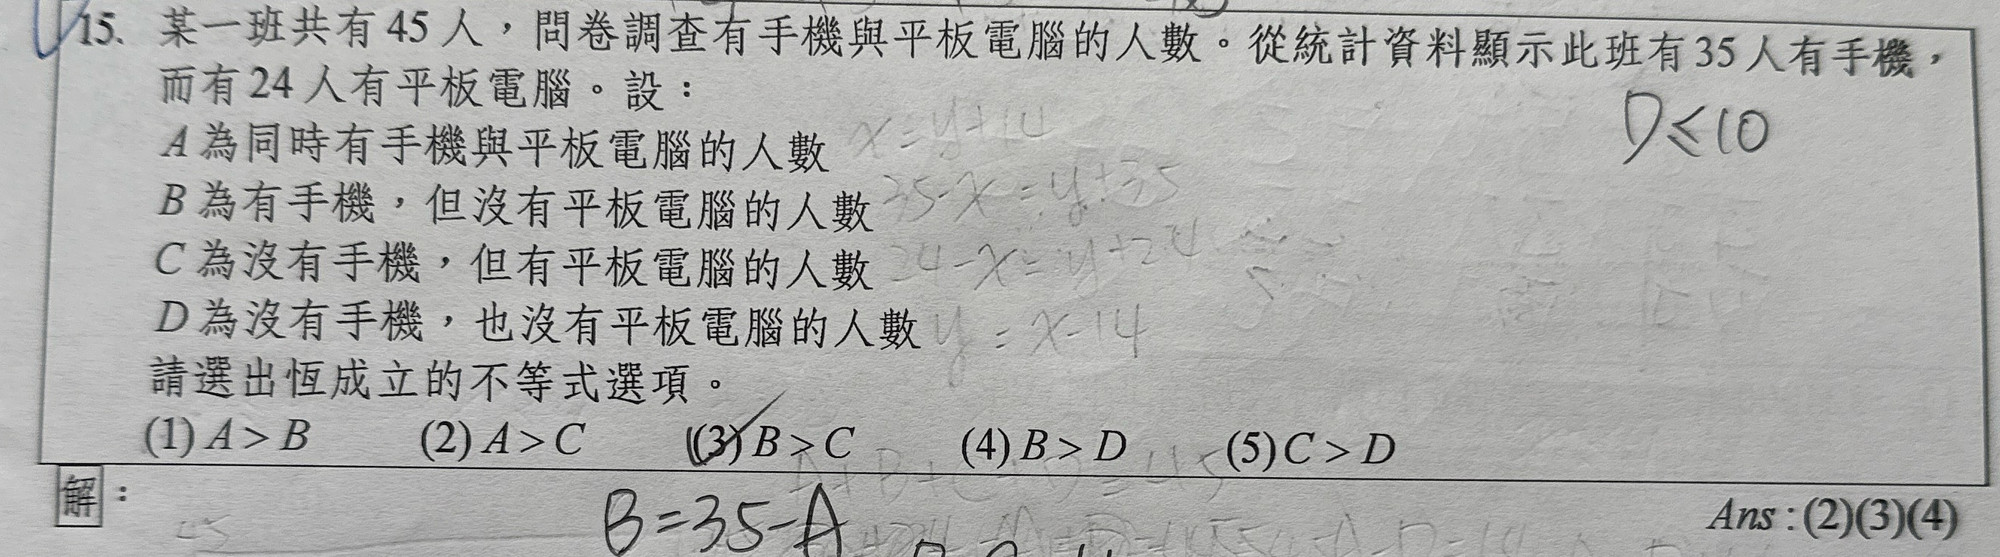 15. 某一班共有 45 人，問卷調查有手機與平板電腦的人數。從統計資料顯示此班有 35 人有手機，
而有 24 人有平板電腦。設：
D≤10
A 為同時有手機與平板電腦的人數 x=y+14
B 為有手機，但沒有平板電腦的人數 35-x=y+35
C 為沒有手機，但有平板電腦的人數 24-x=y+24
D 為沒有手機，也沒有平板電腦的人數 y=x-14
請選出恆成立的不等式選項。
(1) A > B (2) A > C (3) B > C (4) B > D (5) C > D
解：
Ans : (2)(3)(4)
B=35-A